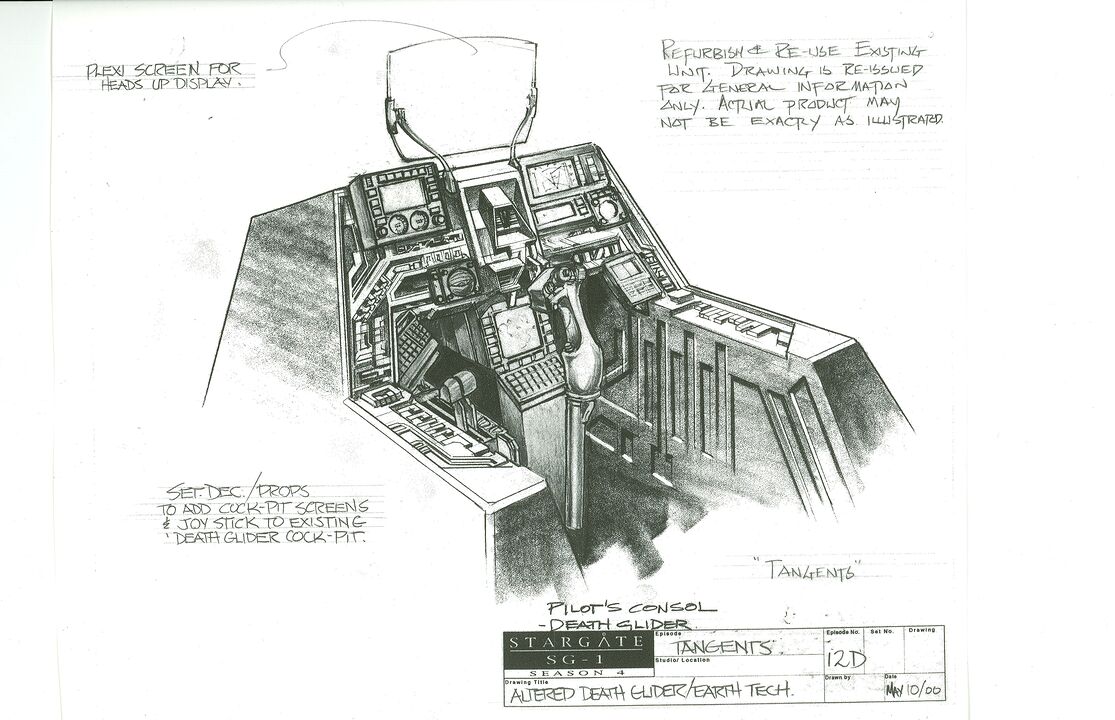 PLEXI SCREEN FOR
HEADS UP DISPLAY.
REFURBISH & RE-USE EXISTING
UNIT. DRAWING IS RE-ISSUED
FOR GENERAL INFORMATION
ONLY. ACTRIAL PRODUCT MAY
NOT BE EXACRY AS ILLUSTRARD.
SET. DEC. / PROPS
TO ADD COCK-PIT SCREENS
& JOY STICK TO EXISTING
'DEATH GLIDER COCK-PIT.
"TANGENTS"
PILOT'S CONSOL
- DEATH GLIDER
STARGATE
SG-1
SEASON 4
Episode
TANGENTS
Studio/ Location
Episode No.
12D
Set No.
Drawing
Drawing Title
ALTERED DEATH GLIDER/EARTH TECH.
Drawn by
Date
MAY 10/00